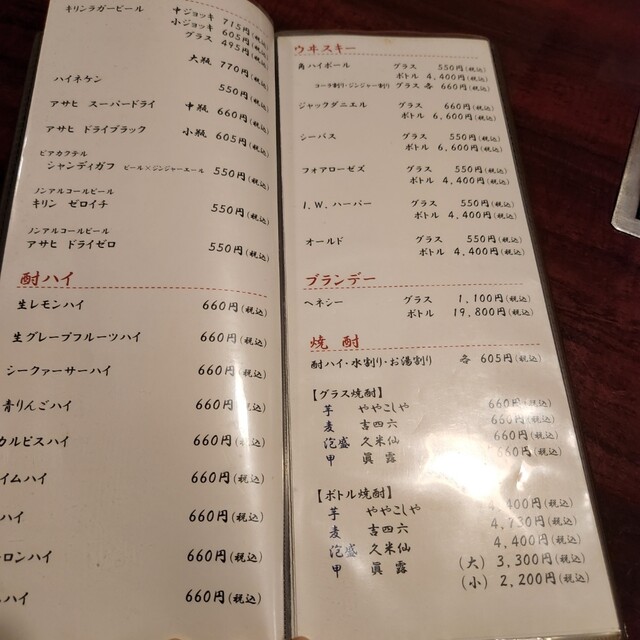 キリンラガービール 中ジョッキ 715円(税込)
小ジョッキ 605円(税込)
グラス 495円(税込)
大瓶 770円(税込)
ハイネケン 550円(税込)
アサヒ スーパードライ 中瓶 660円(税込)
アサヒ ドライブラック 小瓶 605円(税込)
ビアカクテル
シャンディガフ ビール×ジンジャーエール 550円(税込)
ノンアルコールビール
キリン ゼロイチ 550円(税込)
ノンアルコールビール
アサヒ ドライゼロ 550円(税込)
酎ハイ
生レモンハイ 660円(税込)
生グレープフルーツハイ 660円(税込)
シークァーサーハイ 660円(税込)
青りんごハイ 660円(税込)
カルピスハイ 660円(税込)
イムハイ 660円(税込)
ハイ 660円(税込)
ロンハイ 660円(税込)
ハイ 660円(税込)
ウヰスキー
角ハイボール グラス 550円(税込)
ボトル 4,400円(税込)
コーラ割り・ジンジャー割り グラス 各 660円(税込)
ジャックダニエル グラス 660円(税込)
ボトル 6,600円(税込)
シーバス グラス 550円(税込)
ボトル 6,600円(税込)
フォアローゼズ グラス 550円(税込)
ボトル 4,400円(税込)
I.W.ハーパー グラス 550円(税込)
ボトル 4,400円(税込)
オールド グラス 550円(税込)
ボトル 4,400円(税込)
ブランデー
ヘネシー グラス 1,100円(税込)
ボトル 19,800円(税込)
焼酎
酎ハイ・水割り・お湯割り 各 605円(税込)
【グラス焼酎】
芋 ややこしや 660円(税込)
麦 吉四六 660円(税込)
泡盛 久米仙 660円(税込)
甲 眞露 660円(税込)
【ボトル焼酎】
芋 ややこしや 4,400円(税込)
麦 吉四六 4,730円(税込)
泡盛 久米仙 4,400円(税込)
甲 眞露 (大) 3,300円(税込)
(小) 2,200円(税込)